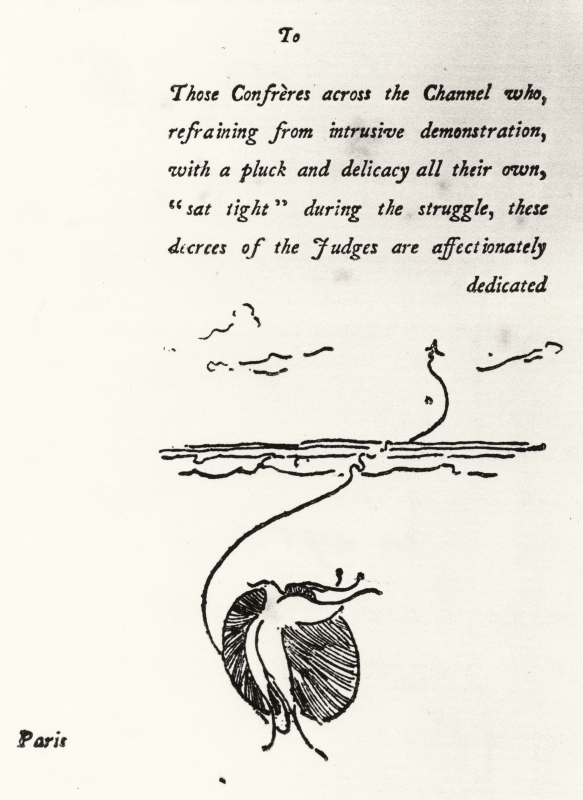 To
Those Confrères across the Channel who,
refraining from intrusive demonstration,
with a pluck and delicacy all their own,
“sat tight” during the struggle, these
decrees of the Judges are affectionately
dedicated
Paris